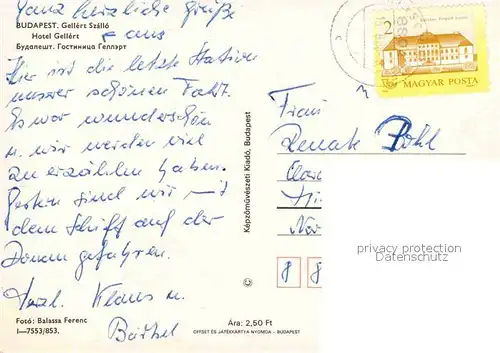 Ganz herzliche Grüße
BUDAPEST. Gellért Szálló
Hotel Gellért
Будапешт. Гостиница Геллэрт
aus
Hier ist die letzte Station
unser schönen Fahrt.
Es war wunderschön
u. wir werden viel
zu erzählen haben.
Gestern sind wir mit
dem Schiff auf der
Donau gefahren.
Herzl. Klaus u.
Bärbel
Fotó: Balassa Ferenc
I—7553/853.
Ára: 2,50 Ft
OFFSET ÉS JÁTÉKKÁRTYA NYOMDA – BUDAPEST
Képzőművészeti Kiadó, Budapest
2
MAGYAR POSTA
Frau
Renate Pohl
privacy protection
Datenschutz
8 8